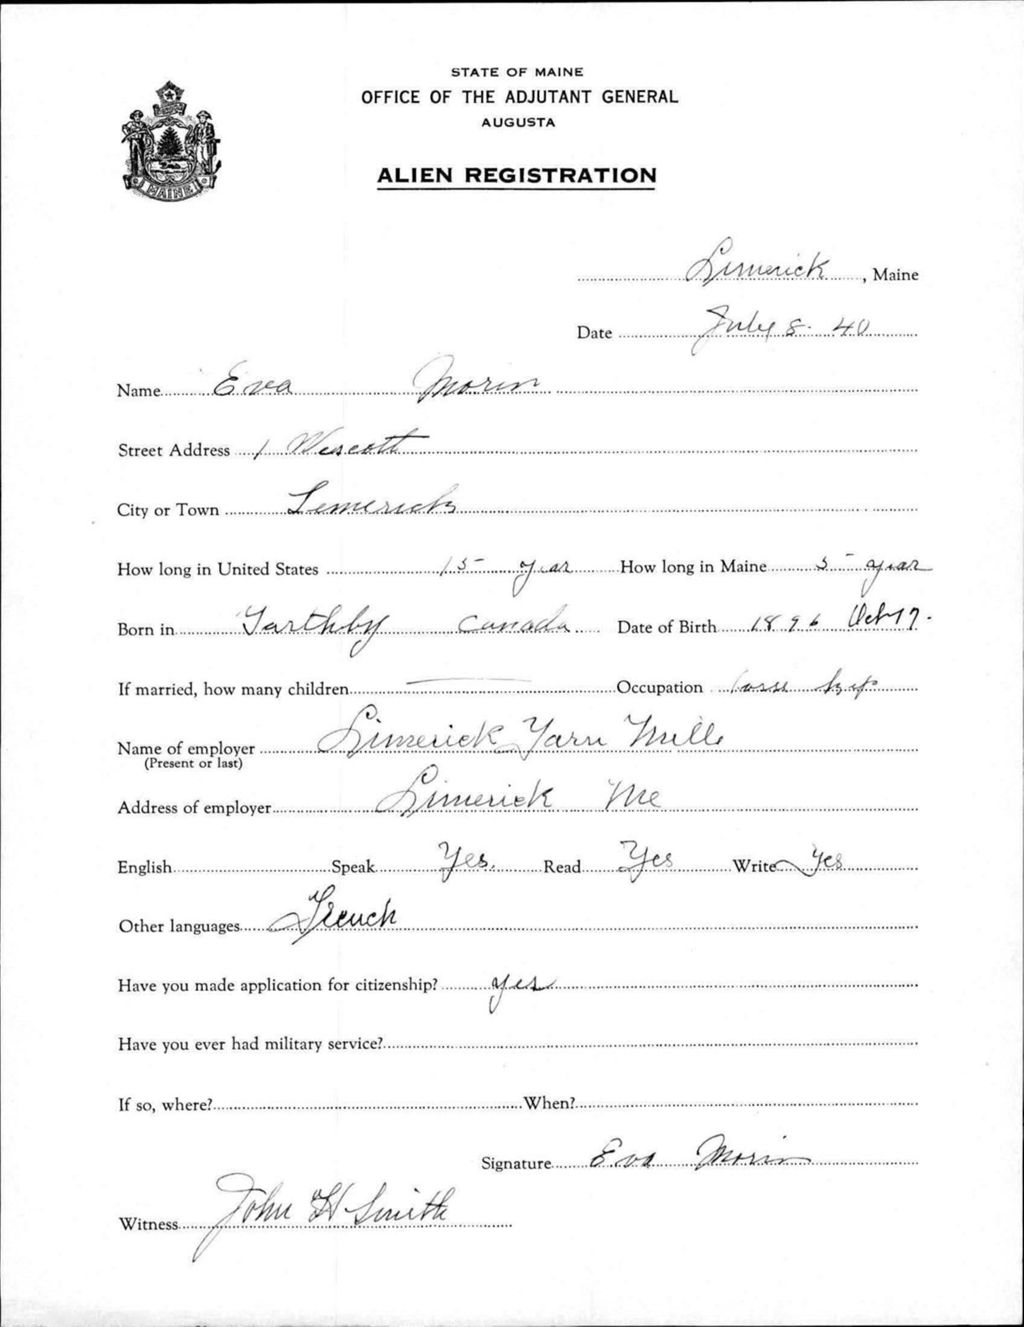 STATE OF MAINE
OFFICE OF THE ADJUTANT GENERAL
AUGUSTA
ALIEN REGISTRATION
MAINE
Limerick, Maine
Date July 8. 40
Name Eva Morin
Street Address 1 Wescott
City or Town Limerick
How long in United States 15 year How long in Maine 5 year
Born in Garthby Canada Date of Birth 1896 Oct 17.
If married, how many children — Occupation
Name of employer Limerick Yarn Mills
(Present or last)
Address of employer Limerick Me
English Speak Yes. Read Yes Write Yes
Other languages French
Have you made application for citizenship? yes
Have you ever had military service?
If so, where? When?
Signature Eva Morin
Witness John H Smith